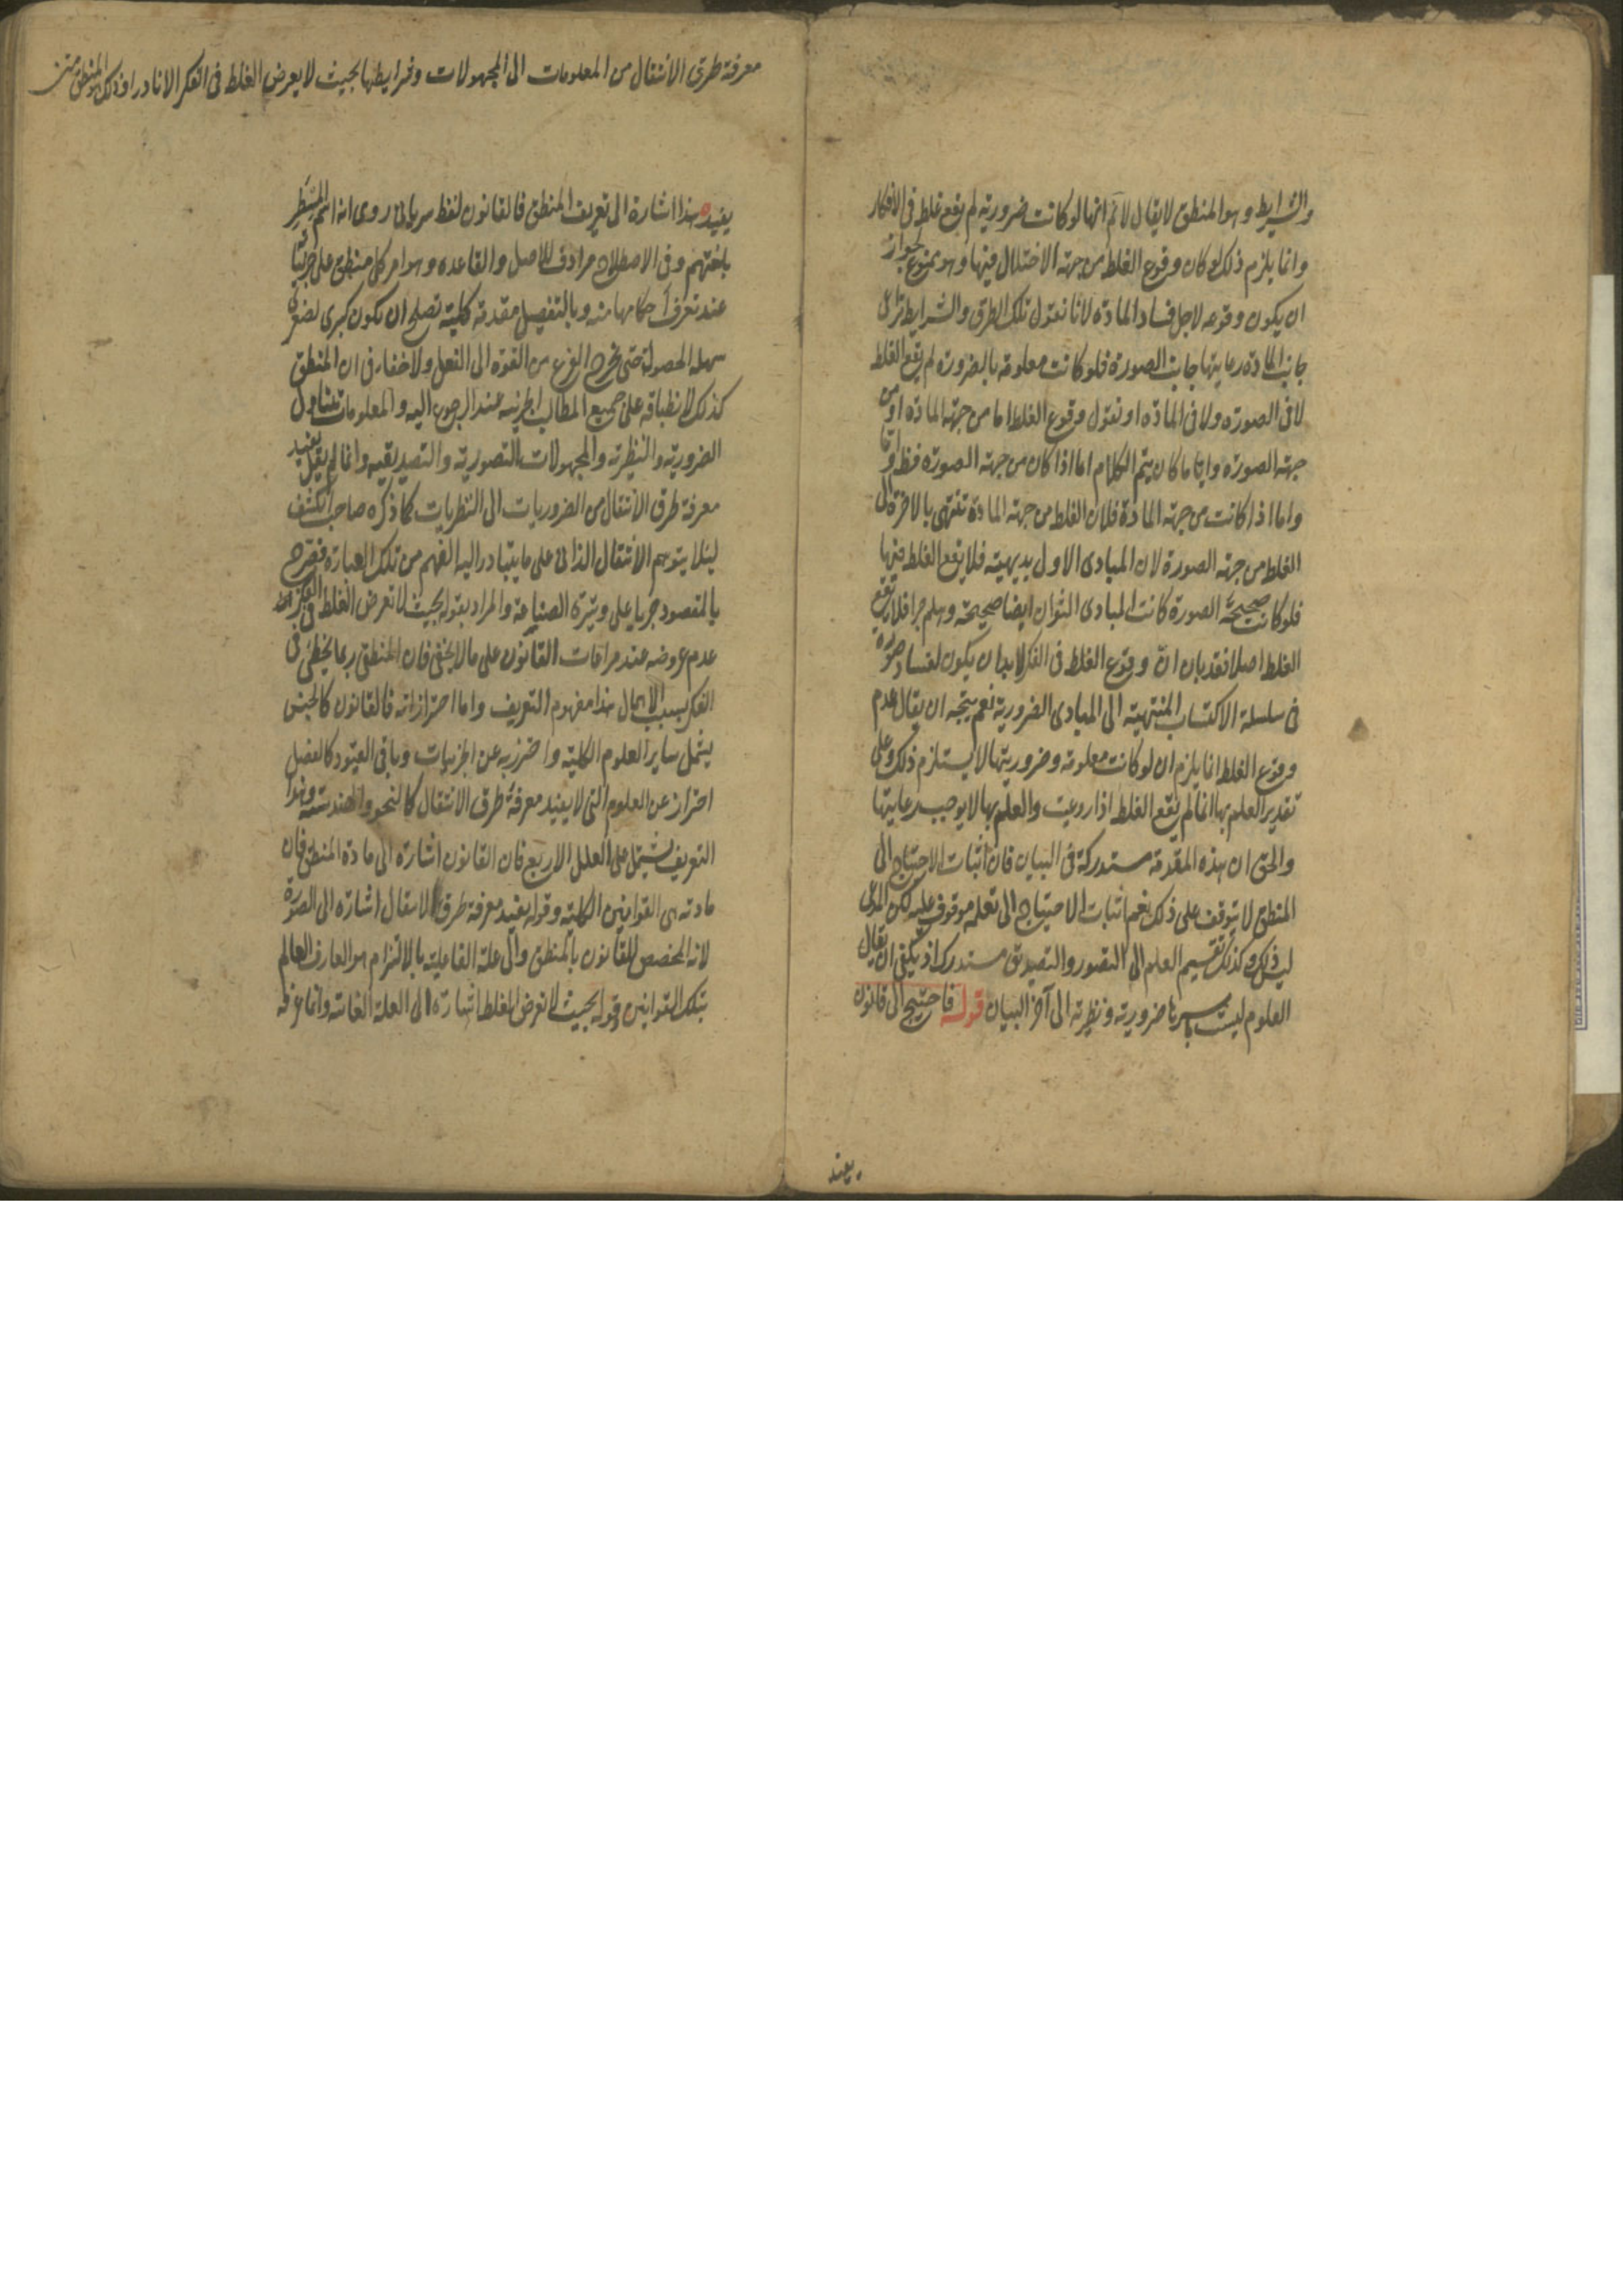 والشرايط وهو المنطق لا يقال لانم انها لو كانت ضرورية لم يقع غلط فى الافكار
وانما يلزم ذلك لو كان وقوع الغلط من جهة الاختلال فيها وهو ممنوع لجواز
ان يكون وقوعه لاجل فساد المادة لانا نقول تلك الطرق والشرايط تراعى
جانب المادة رعايتها جانب الصورة فلو كانت معلومة بالضرورة لم يقع الغلط
لا فى الصورة ولا فى المادة او نقول وقوع الغلط اما من جهة المادة او من
جهة الصورة وايا ما كان يتم الكلام اما اذا كان من جهة الصورة فظ واما
واما اذا كانت من جهة المادة فلان الغلط من جهة المادة تنتهى بالاخرة الى
الغلط من جهة الصورة لان المبادى الاول بديهية فلا يقع الغلط فيها
فلو كانت صحيحة الصورة كانت المبادى الثوان ايضا صحيحة وهلم جرا فلا يقع
الغلط اصلا فقد بان ان وقوع الغلط فى الفكر لا بد ان يكون لفساد صورة
فى سلسلة الاكتساب المنتهية الى المبادى الضرورية نعم يتجه ان يقال عدم
وقوع الغلط انما يلزم ان لو كانت معلومة وضروريتها لا يستلزم ذلك وعلى
تقدير العلم بها انما لم يقع الغلط اذا روعيت والعلم بها لا يوجب رعايتها
والحق ان هذه المقدمة مستدركة فى البيان فان اثبات الاحتياج الى
المنطق لا يتوقف على ذلك نعم اثبات الاحتياج الى تعلمه موقوف عليه لكن المدعى
ليس ذلك وكذلك تقسيم العلم الى التصور والتصديق مستدرك اذ يكفى ان يقال
العلوم ليست باسرها ضرورية ونظرية الى آخر البيان قوله فاحتيج الى قانون
يفيد
معرفة طرق الانتقال من المعلومات الى المجهولات وشرايطها بحيث لا يعرض الغلط فى الفكر الا نادرا وذلك هو المنطق متن
يفيد هذا اشارة الى تعريف المنطق فالقانون لفظ سريانى روى انه اسم المسطر
بلغتهم وفى الاصطلاح مرادف للاصل والقاعده وهو امر كلى منطبق على جزئياته
عند تعرف احكامها منه وبالتفصيل مقدمة كلية تصلح ان يكون كبرى لصغرى
سهلة الحصول حتى يخرج الفرع من القوة الى الفعل ولا خفاء فى ان المنطق
كذلك لانطباقه على جميع المطالب الجزئية عند الرجوع اليه والمعلومات تتناول
الضرورية والنظرية والمجهولات التصورية والتصديقيه وانما لم يقل يفيد
معرفة طرق الانتقال من الضروريات الى النظريات كما ذكره صاحب الكشف
لئلا يتوهم الانتقال الذاتى على ما يتبادر اليه الفهم من تلك العبارة فصرح
بالمقصود جريا على وتيرة الصناعة والمراد بقوله بحيث لا تعرض الغلط فى الفكر
عدم عروضه عند مراعات القانون على ما لا يخفى فان المنطقى ربما يخطئ فى
الفكر بسبب الاهمال هذا مفهوم التعريف واما احترازاته فالقانون كالجنس
يشمل ساير العلوم الكلية واحترز به عن الجزئيات وباقى القيود كالفصل
احتراز عن العلوم التى لا يفيد معرفة طرق الانتقال كالنحو والهندسة وهذا
التعريف يشتمل على العلل الاربع فان القانون اشارة الى مادة المنطق فان
مادته هى القوانين الكلية وقوله يفيد معرفة طرق الانتقال اشارة الى الصورة
لانه المخصص للقانون بالمنطق والى علة الفاعلية بالالتزام هو العارف العالم
بتلك القوانين وقوله بحيث لا تعرض الغلط اشارة الى العلة الغائية وانما عرفه